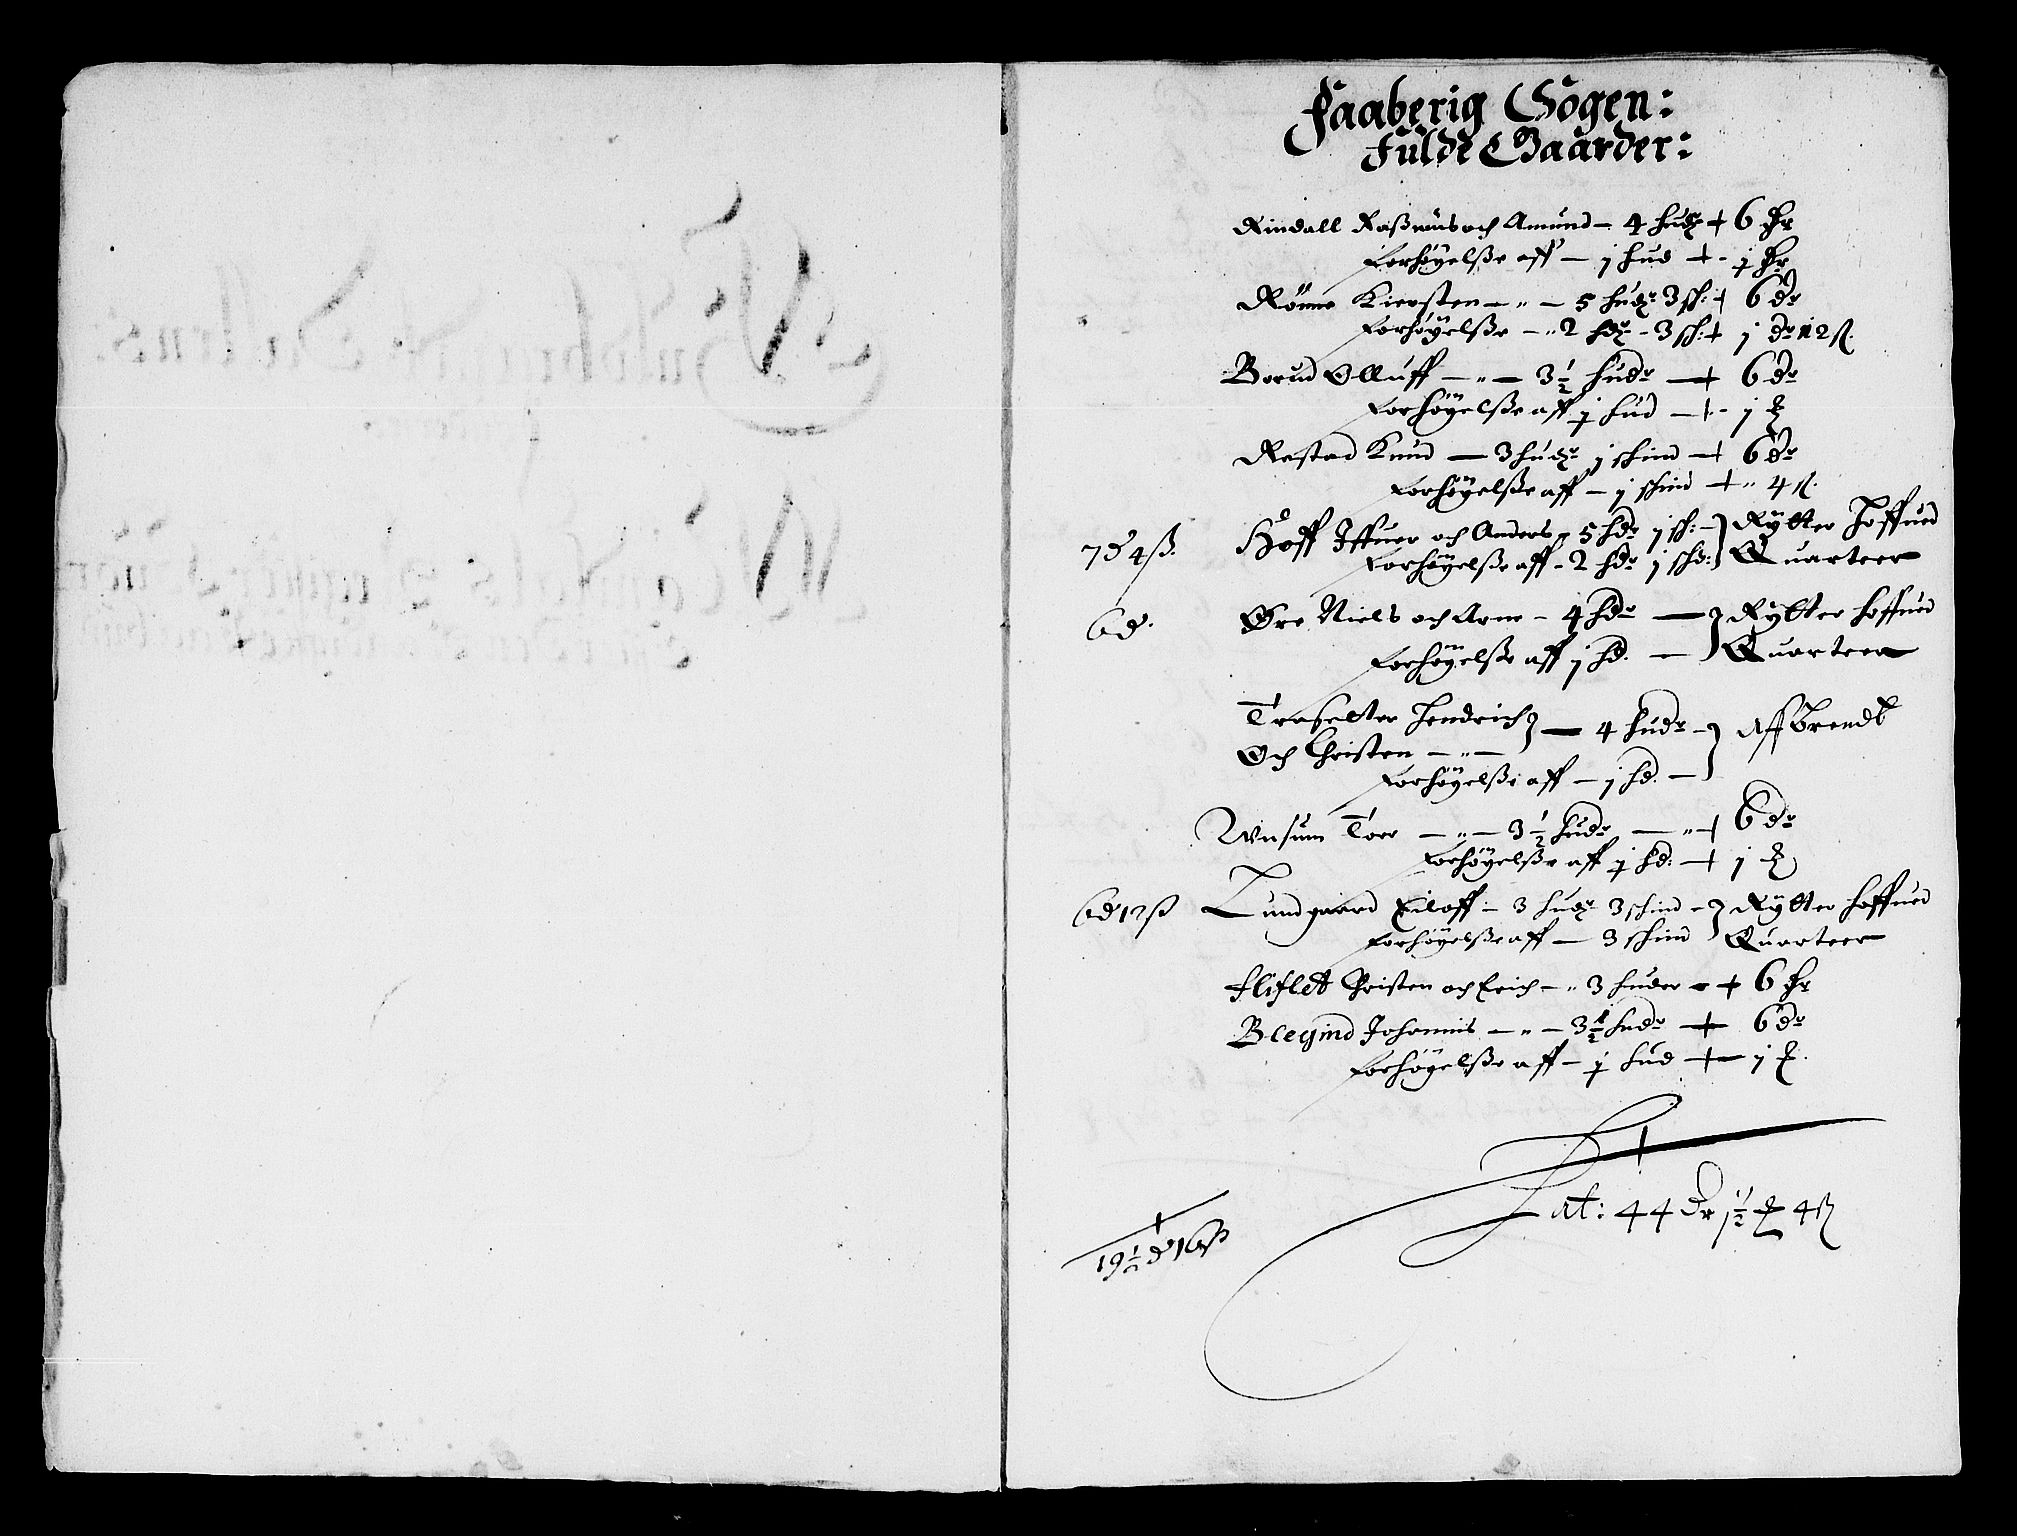 Faaberig Sogen:
Fulde Gaarder:
Rindall Rasmus och Amund - 4 hudr + 6 dr
forhøyelsse aff - j hud + - j dr
Rønne Kiersten - " - 5 hudr 3 sk: + 6 dr
forhøyelsse - " 2 hdr - 3 sk: + j dr 12 s.
Borud Olluff - " - 3½ hudr - + 6 dr
forhøyelsse aff j hud - + - j
Rostad Knud - 3 hudr j skind - + 6 dr
forhøyelsse aff - j skind + " 4 s.
7 d 4 ß. Hoff Iffuer och Anders - 5 hdr j sk: - } Rytter hoffued
forhøyelsse aff - 2 hdr j skd: } Quarteer
6 d. Øre Niels och Arne - 4 hdr - } Rytter hoffued
forhøyelsse aff j hd. - } Quarteer
Troselter Hendrich } - 4 hudr - } Affbrendt
Och Christen - " - 
forhøyelsse aff - j hd. -
Wnsum Tore - " - 3½ hudr - " + 6 dr
forhøyelsse aff j hd: - + j
6 d 12 ß Lundgaard Eiloff - 3 hudr 3 skind - } Rytter hoffued
forhøyelsse aff - 3 skind } Quarteer
Fliflet Christen och Erich - " 3 huder - + 6 dr
Blegind Johannis - " - 3½ hudr + 6 dr
forhøyelsse aff - j hud + - j
Lat: 44 dr 1½ 4 ß
19½ d 16 ß